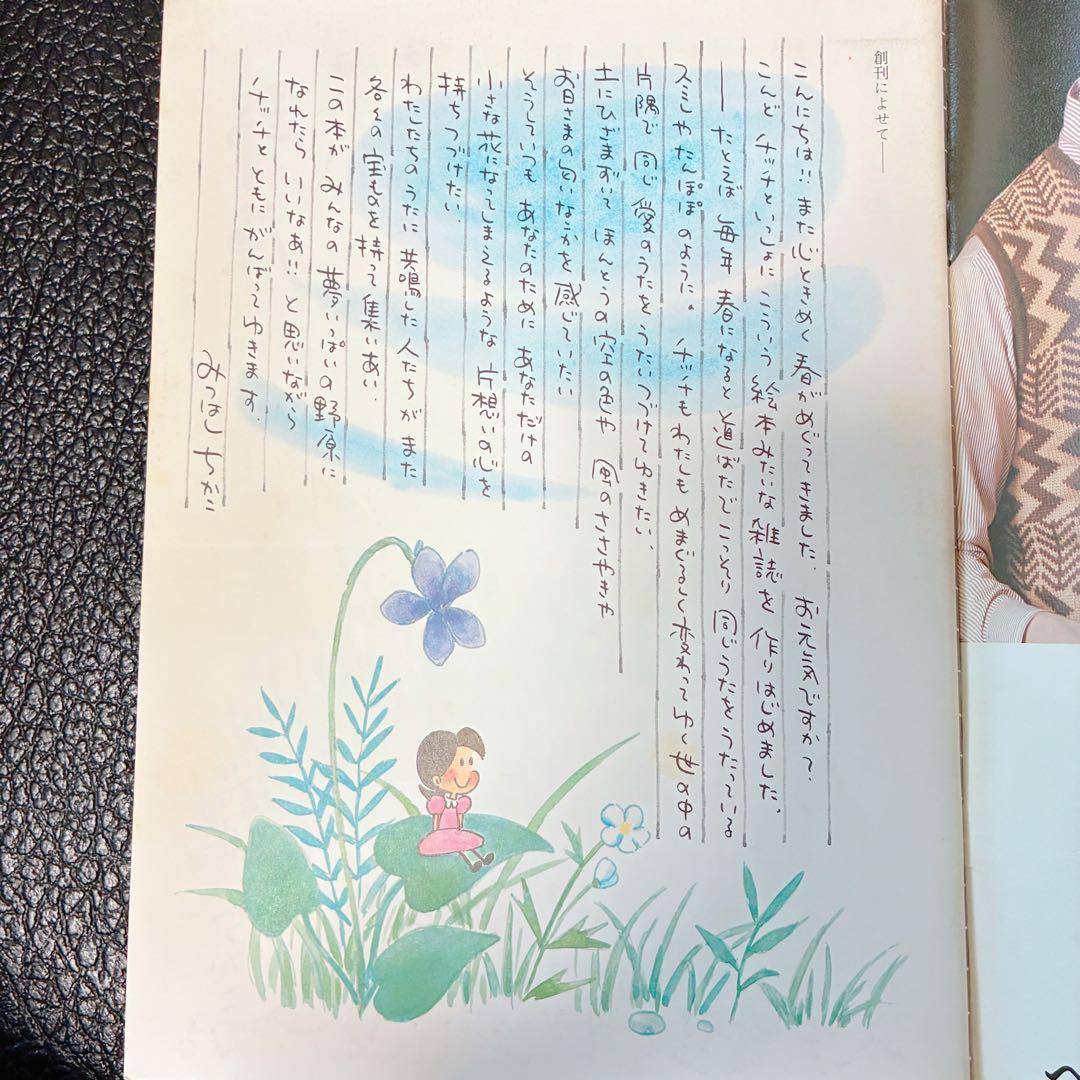 創刊によせて──
こんにちは!!! また心ときめく春がめぐってきました. お元気ですか?
こんど チッチといっしょに こういう 絵本みたいな 雑誌を 作りはじめました.
── たとえば 毎年 春になると 道ばたで こっそり 同じうたをうたっている
スミレや たんぽぽ のように。 チッチも わたしも めまぐるしく変わってゆく世の中の
片隅で 同じ愛のうたを うたいつづけてゆきたい.
土にひざまずいて ほんとうの空の色や 風のささやきや
お日さまの匂いなんかを 感じていたい
そうしていつも あなたのために あなただけの
小さな花になってしまえるような 片想いの心を
持ちつづけたい.
わたしたちのうたに 共鳴した 人たちが また
各々の 実ものを 持って集いあい.
この本が みんなの 夢いっぱいの野原に
なれたら いいなあ!! と思いながら
チッチと ともに がんばってゆきます.
みつはしちかこ